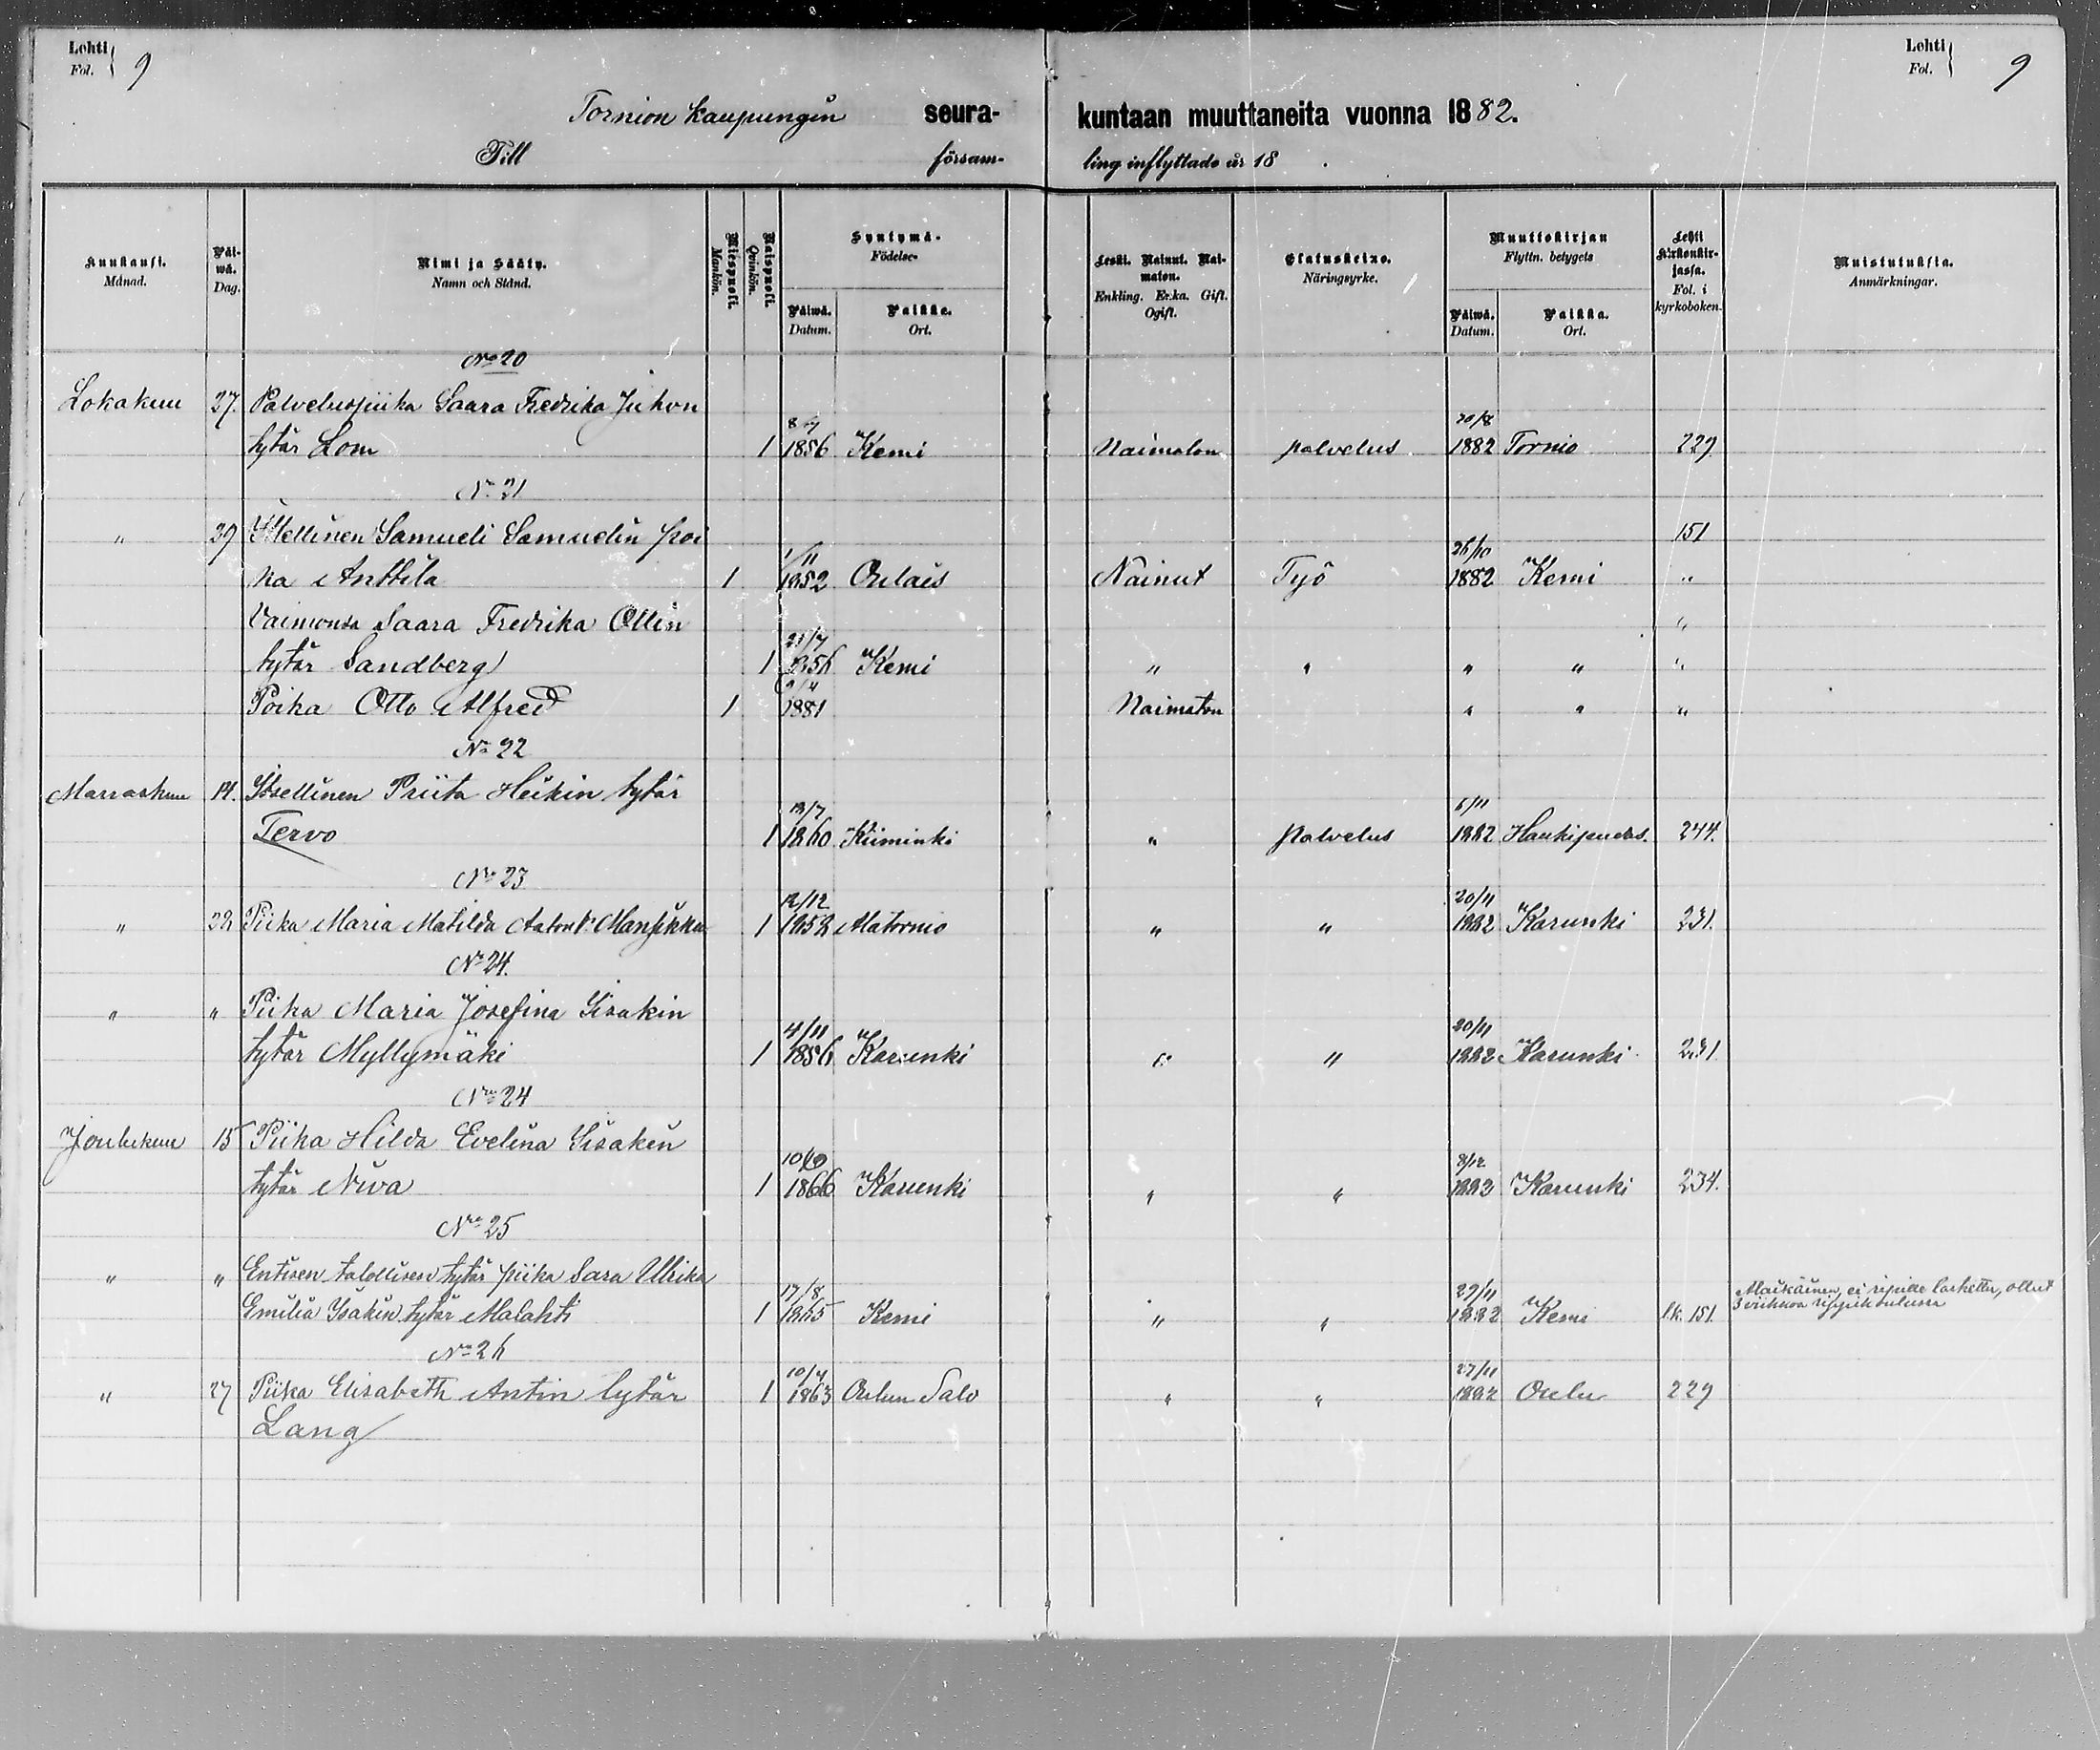 Lehti Fol. } 9
Lehti Fol. } 9
Tornion kaupungin seura- kuntaan muuttaneita vuonna 1882.
Till försam- ling inflyttade år 18 .
Kuukausi. Månad.
Päi-wä. Dag.
Nimi ja Sääty. Namn och Stånd.
Miespuoli. Mankön.
Naispuoli. Qvinkön.
Syntymä- Födelse-
Päiwä. Datum.
Paikka. Ort.
Leski. Nainut. Nai-maton. Enkling. Enka. Gift. Ogift.
Elatuskeino. Näringsyrke.
Muuttokirjan Flyttn. betygets
Päiwä. Datum.
Paikka. Ort.
Lehti Kirkonkir-jassa. Fol. i kyrkoboken.
Muistutuksia. Anmärkningar.
No 20
Lokakuu 27. Palveluspiika Saara Fredrika Juhon
8/7 20/8
tytär Lom 1 1856 Kemi Naimaton palvelus 1882 Tornio 229
No 21
" 29 Itsellinen Samueli Samuelin poi 151
1/11 26/10
ka Anttila 1 1852 Oulais Nainut Työ 1882 Kemi "
Vaimonsa Saara Fredrika Ollin "
21/7
tytär Sandberg 1 1856 Kemi " " " " "
9/4
Poika Otto Alfred 1 1881 Naimaton " " "
No 22
Marraskuu 14. Itsellinen Priita Heikin tytär
13/7 6/11
Tervo 1 1860 Kiiminki " palvelus 1882 Haukipudas. 244.
No 23
12/12 20/11
" 22 Piika Maria Matilda Aaton t. Mansikka 1 1852 Alatornio " " 1882 Karunki 231.
No 24.
" " Piika Maria Josefina Iisakin
4/11 20/11
tytär Myllymäki 1 1856 Karunki " " 1882 Karunki 231
No 24
Joulukuu 15 Piika Hilda Evelina Iisakin
8/12
tytär Niva 1 1866 Karunki " " 1882 Karunki 234.
No 25
" " Entisen talollisen tytär piika Sara Ulrika
17/8 29/11 Maikäinen, ei ripille laskettu, ollut
Emilia Isakin tytär Malahti 1 1865 Kemi " " 1882 Kemi l.k. 151. 3 viikkoa rippikoulussa
No 26
10/4 27/11
" 27 Piika Elisabeth Antin tytär 1 1863 Oulun Salo " " 1882 Oulu 229
Lang